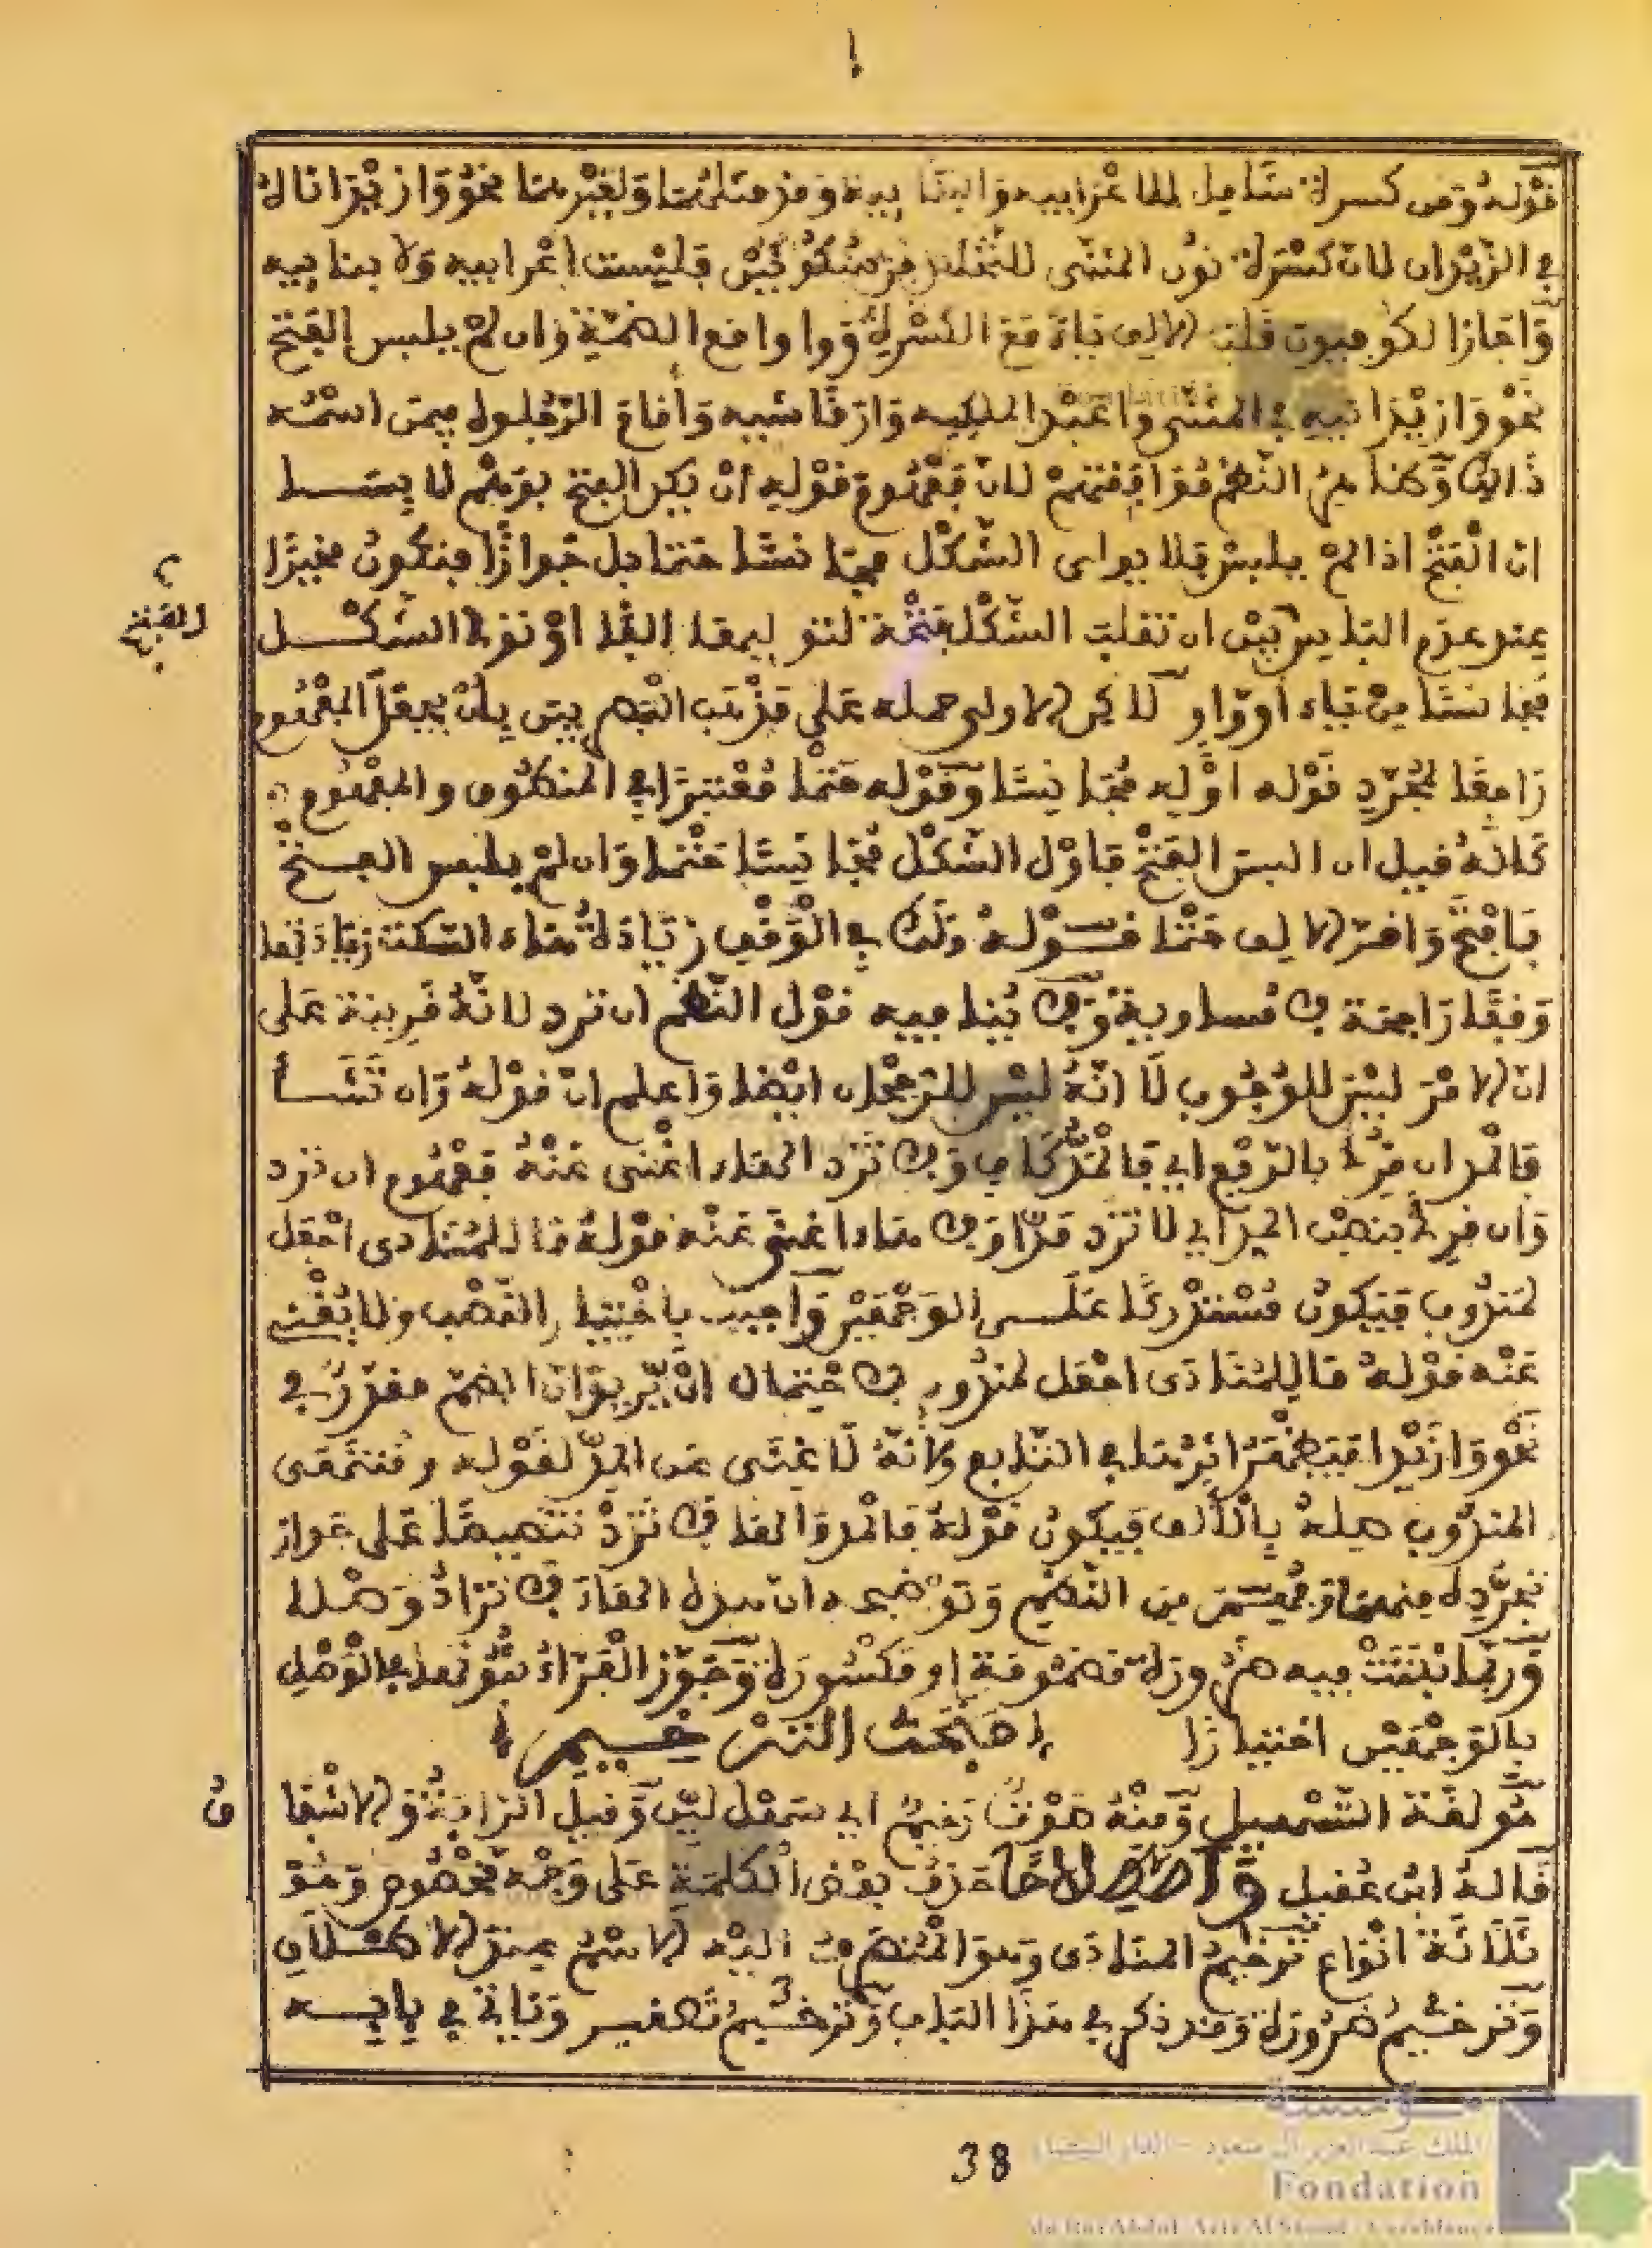 قوله وفي كسرة شامل للاعرابية والبنائية وقد مثلهما ولغيرهما نحو وازيدانا
في الزيدان لان كسرة نون المثنى للتخلص من سكونين فليست اعرابية ولا بنائية
واجاز الكوفيون قلب الالف ياء مع الكسرة وواوا مع الضمة وان لم يلبس الفتح
نحو وازيدانيه في المثنى واعبد الملكيه وارقاشيه واقام الرجلوه فيمن اسمه
ذالك وكلام النظم موافقتهم لان مفهوم قوله ان يكن الفتح بوهم لابسا
ان الفتح اذا لم يلبس فلا يوالى الشكل مجانسا حتما بل جوازا فيكون مخيرا
عند عدم التلبيس بين ان تقلب الشكل فتحة لتو ليها الفا او توليها الشكل
مجانسا من ياء او واو لاكن الاولى حمله على مذهب البصريين بان يجعل المفهوم
راجعا لمجرد قوله اوله مجانسا وقوله حتما معتبرا في المنطوق والمفهوم
كانه قيل ان البس الفتح فاول الشكل مجانسا حتما وان لم يلبس الفتح
فافتح واقر الالف حتما قوله وقف في الوقف زيادة هاء السكت زيادتها
وقفا راجحة لا مساوية ولا ينافيه قول النظم ان ترد لانه قرينة على
ان الامر ليس للوجوب لا انه ليس للرجحان ايضا واعلم ان قوله وان تشأ
فالمد ان قرئ بالرفع اي فالمد كاف ولا تزد الهاء اغنى عنه مفهوم ان ترد
وان قرئ بنصب المد اي لا تزد مدا ولا هاء اغنى عنه قوله ما للمنادى اجعل
لمندوب فيكون مستدركا على الوجهين واجيب باختيار النصب ولا يغني
عنه قوله ما للمنادى اجعل لمندوب لاحتمال ان يريد وان الضم مقدر في
نحو وازيدا فيظهر اثرها في التابع ولانه لا غنى عن المد لقوله ومنتهى
المندوب صله بالالف فيكون قوله فالمد والها لا تزد تنصيصا على جواز
تجرده منهما ومجيئه من النظم وتوضيحه ان هذه الهاء لا تزاد وصلا
وربما ثبتت فيه ضرورة مضمومة او مكسورة وجوز الفراء ثبوتها في الوصل
بالوجهين اختيارا مبحث الترخيم
هو لغة التسهيل ومنه صوت رخيم اي سهل لين وقيل الرافة والاشفا
ق
قاله ابن عقيل واصطلاحا حذف بعض الكلمة على وجه مخصوص وهو
ثلاثة انواع ترخيم المنادى وهو المنصرف اليه الاسم عند الاطلاق
وترخيم ضرورة وقد ذكر في هذا الباب وترخيم تصغير وياتي في بابه
38
مؤسسة
الملك عبد العزيز آل سعود - الدار البيضاء
Fondation
du Roi Abdul-Aziz Al Saoud - Casablanca